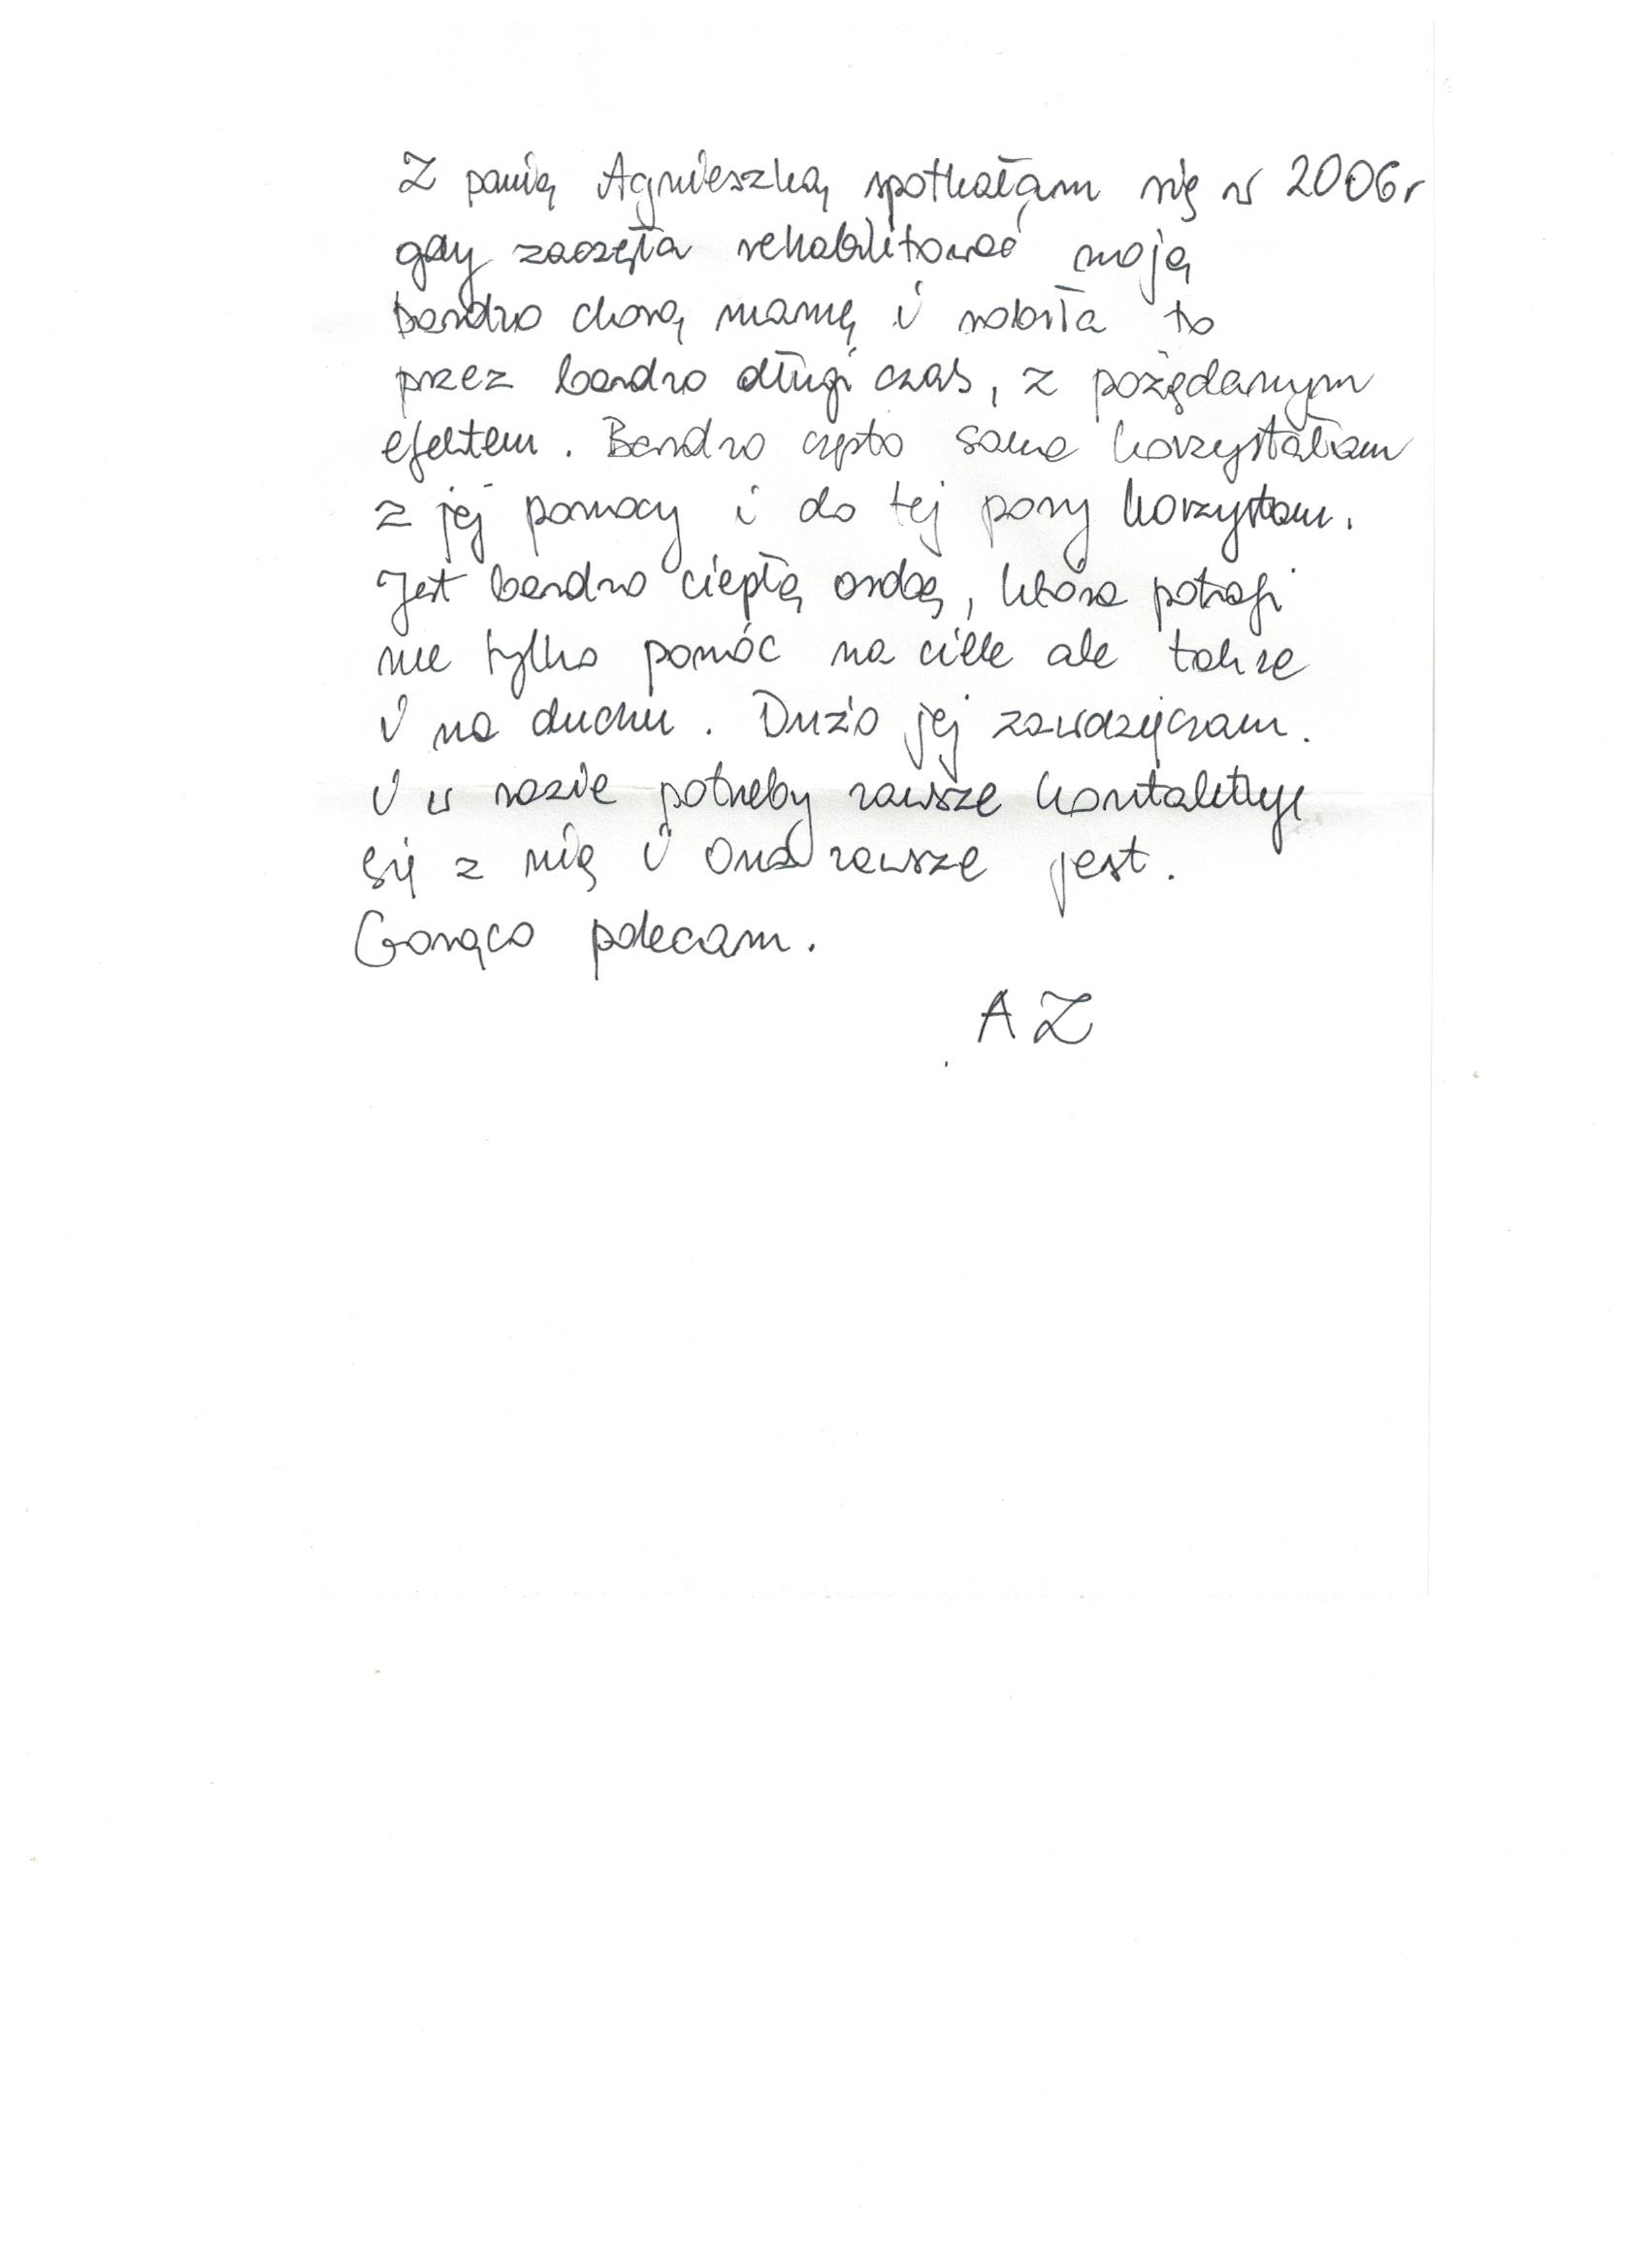 Z panią Agnieszką spotkałam się w 2006r
gdy zaczęła rehabilitować moją
bardzo chorą mamę i robiła to
przez bardzo długi czas, z pożądanym
efektem. Bardzo często sama korzystałam
z jej pomocy i do tej pory korzystam.
Jest bardzo ciepłą osobą, która potrafi
nie tylko pomóc na ciele ale także
i na duchu. Dużo jej zawdzięczam.
i w razie potrzeby zawsze kontaktuję
się z nią i Ona zawsze jest.
Gorąco polecam.
AZ